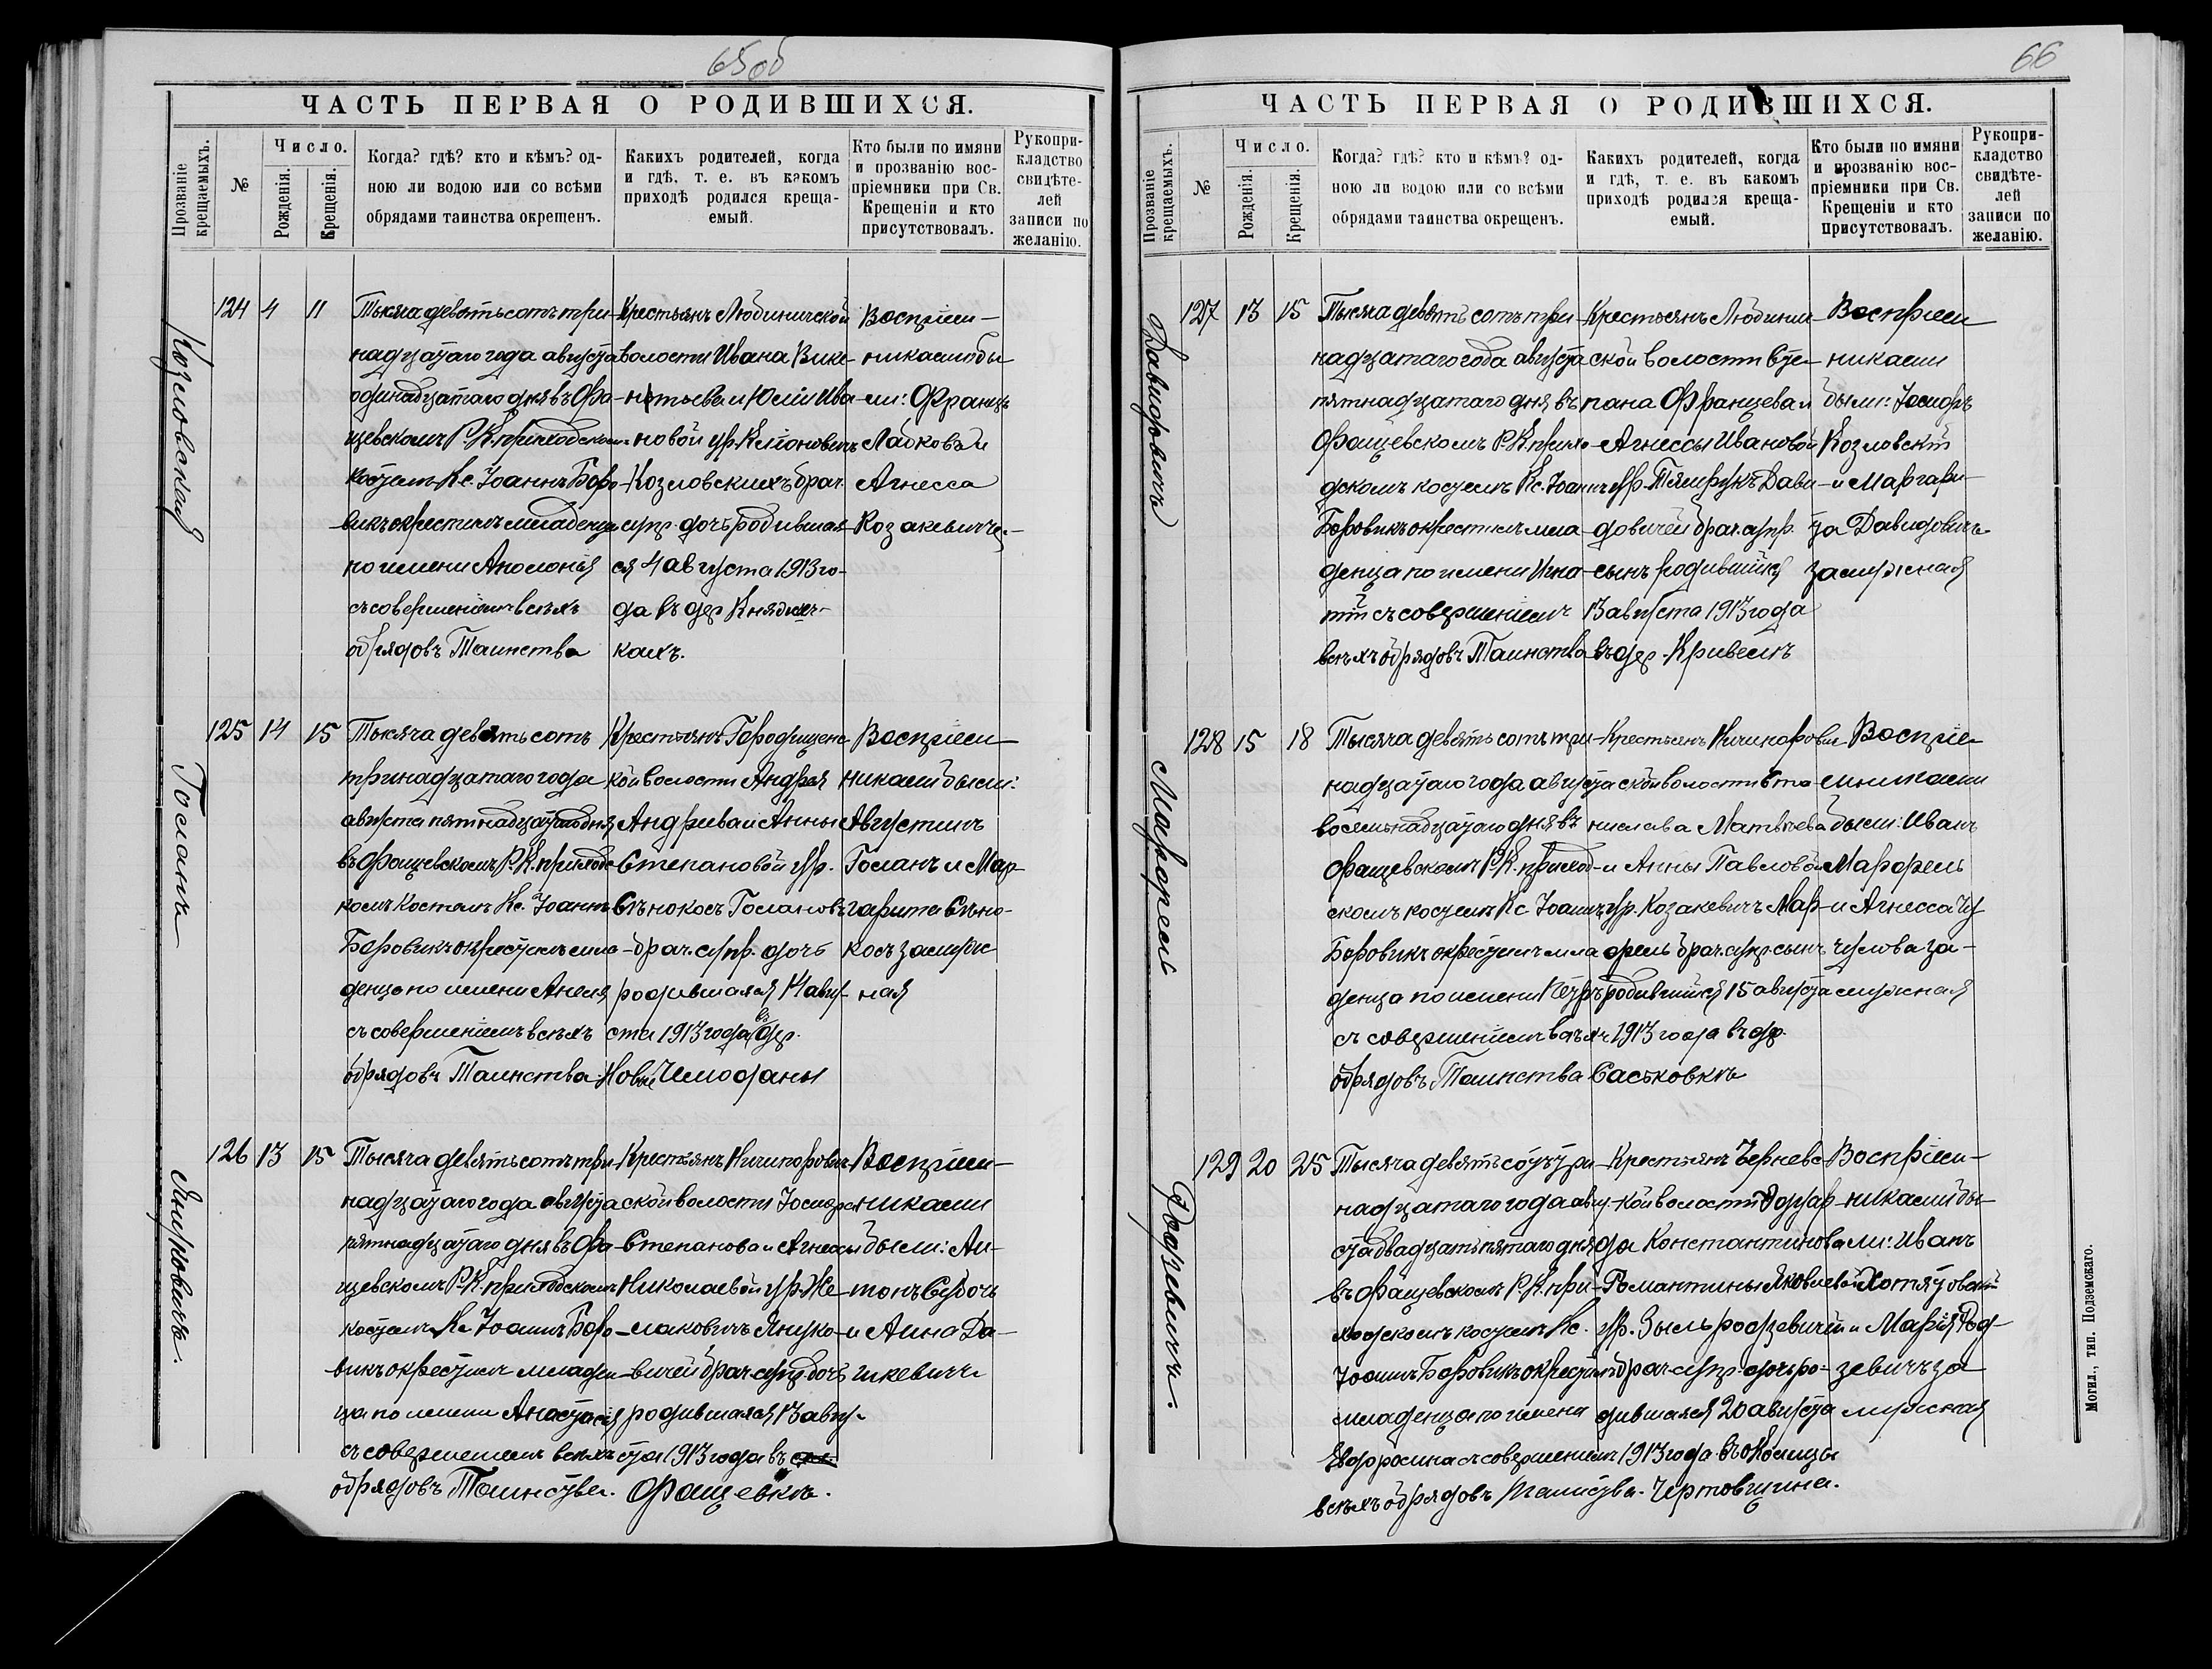 65об
ЧАСТЬ ПЕРВАЯ О РОДИВШИХСЯ.
Прозваніе крещаемыхъ.
№
Число.
Рожденія.
Крещенія.
Когда? гдѣ? кто и кѣмъ? од-
ною ли водою или со всѣми
обрядами таинства окрещенъ.
Какихъ родителей, когда
и гдѣ, т. е. въ какомъ
приходѣ родился креща-
емый.
Кто были по имяни
и прозванію вос-
пріемники при Св.
Крещеніи и кто
присутствовалъ.
Рукопри-
кладство
свидѣте-
лей
записи по
желанію.
Козловская
124 4 11
Тысяча девятьсотъ три-
надцатаго года августа
одинадцатаго дня въ Фа-
щевскомъ Р.К. приходскомъ
костелѣ Кс. Іоаннъ Боро-
викъ окрестилъ младенца
по имени Аполонія
съ совершеніемъ всѣхъ
обрядовъ Таинства
Крестьянъ Любиничской
волости Ивана Вике-
нтьева и Юліи Ива-
новой ур.
Козловскихъ брач.
супр. дочь родившая-
ся 4 августа 1913 го-
да въ дер.
кахъ.
Воспріем-
никами бы-
ли: Францъ
Агнесса
Козакевичъ
Госланъ
125 14 15
Тысяча девятьсотъ
тринадцатаго года
августа пятнадцатаго дня
въ Фащевскомъ Р.К. приходс-
комъ костелѣ Кс. Іоаннъ
Боровикъ окрестилъ мла-
денца по имени Анеля
съ совершеніемъ всѣхъ
обрядовъ Таинства
Крестьянъ Городищенс-
кой волости Андрея
Андреева и Анны
Степановой ур.
Сѣнокосъ Геслановъ
брач. супр. дочь
родившаяся 14 авгу-
ста 1913 года въ дер.
Новые Чемоданы
Воспріем-
никами были:
Августинъ
Госланъ и Мар-
гарита Сѣно-
косъ замуж-
ная
Янушковичъ.
126 13 15
Тысяча девятьсотъ три-
надцатаго года августа
пятнадцатаго дня въ Фа-
щевскомъ Р.К. приходскомъ
костелѣ Кс. Іоаннъ Боро-
викъ окрестилъ младен-
ца по имени Анастасія
съ совершеніемъ всѣхъ
обрядовъ Таинства.
Крестьянъ Ничипорович-
ской волости Іосифа
Степанова и Агнессы
Николаевой ур.
вичей брач. супр. дочь
родившаяся 13 авгу-
ста 1913 года въ
Фащевкѣ.
Воспріем-
никами
были: Ан-
тонъ Суботь
и Анна Да-
шкевичъ
66
ЧАСТЬ ПЕРВАЯ О РОДИВШИХСЯ.
Прозваніе крещаемыхъ.
№
Число.
Рожденія.
Крещенія.
Когда? гдѣ? кто и кѣмъ? од-
ною ли водою или со всѣми
обрядами таинства окрещенъ.
Какихъ родителей, когда
и гдѣ, т. е. въ какомъ
приходѣ родился креща-
емый.
Кто были по имяни
и прозванію вос-
пріемники при Св.
Крещеніи и кто
присутствовалъ.
Рукопри-
кладство
свидѣте-
лей
записи по
желанію.
Давидовичъ
127 13 15
Тысяча девятьсотъ три-
надцатаго года августа
пятнадцатаго дня въ
Фащевскомъ Р.К. прихо-
дскомъ костелѣ Кс. Іоаннъ
Боровикъ окрестилъ мла-
денца по имени Игна-
тій съ совершеніемъ
всѣхъ обрядовъ Таинства
Крестьянъ Любинич-
ской волости Сте-
пана Францева и
Агнессы Ивановой
ур. Дави-
довичей брач. супр.
сынъ родившійся
13 августа 1913 года
въ дер. Кривеляхъ
Воспріем-
никами
были: Іосифъ
Козловскій
и Маргари-
та Давидовичъ
замужная
Марфель
128 15 18
Тысяча девятьсотъ три-
надцатаго года августа
восемнадцатаго дня въ
Фащевскомъ Р.К. приход-
скомъ костелѣ Кс Іоаннъ
Боровикъ окрестилъ мла-
денца по имени Петръ
съ совершеніемъ всѣхъ
обрядовъ Таинства
Крестьянъ Ничипорович-
ской волости Ста-
нислава Матвѣева
и Анны Павловой
ур. Козакевичъ Мар-
фель брач. супр. сынъ
родившійся 15 августа
1913 года въ др.
Саськовкѣ
Воспріе-
мниками
были: Иванъ
Марфель
и Агнесса
за-
мужная
Родзевичъ.
129 20 25
Тысяча девятьсотъ три-
надцатаго года авгу-
ста двадцать пятаго дня
въ Фащевскомъ Р.К. при-
ходскомъ костелѣ Кс.
Іоаннъ Боровикъ окрестилъ
младенца по имени
съ совершеніемъ
всѣхъ обрядовъ таинства.
Крестьянъ Черневс-
кой волости Эдуар-
да Константинова
Яковлевой
ур. Родзевичей
брач. супр. дочь ро-
дившаяся 20 августа
1913 года въ околицы
Чертовщина.
Воспріем-
никами бы-
ли: Иванъ
Хотятовскій
и Марія Род-
зевичъ за-
мужная
Могил., тип. Подземскаго.